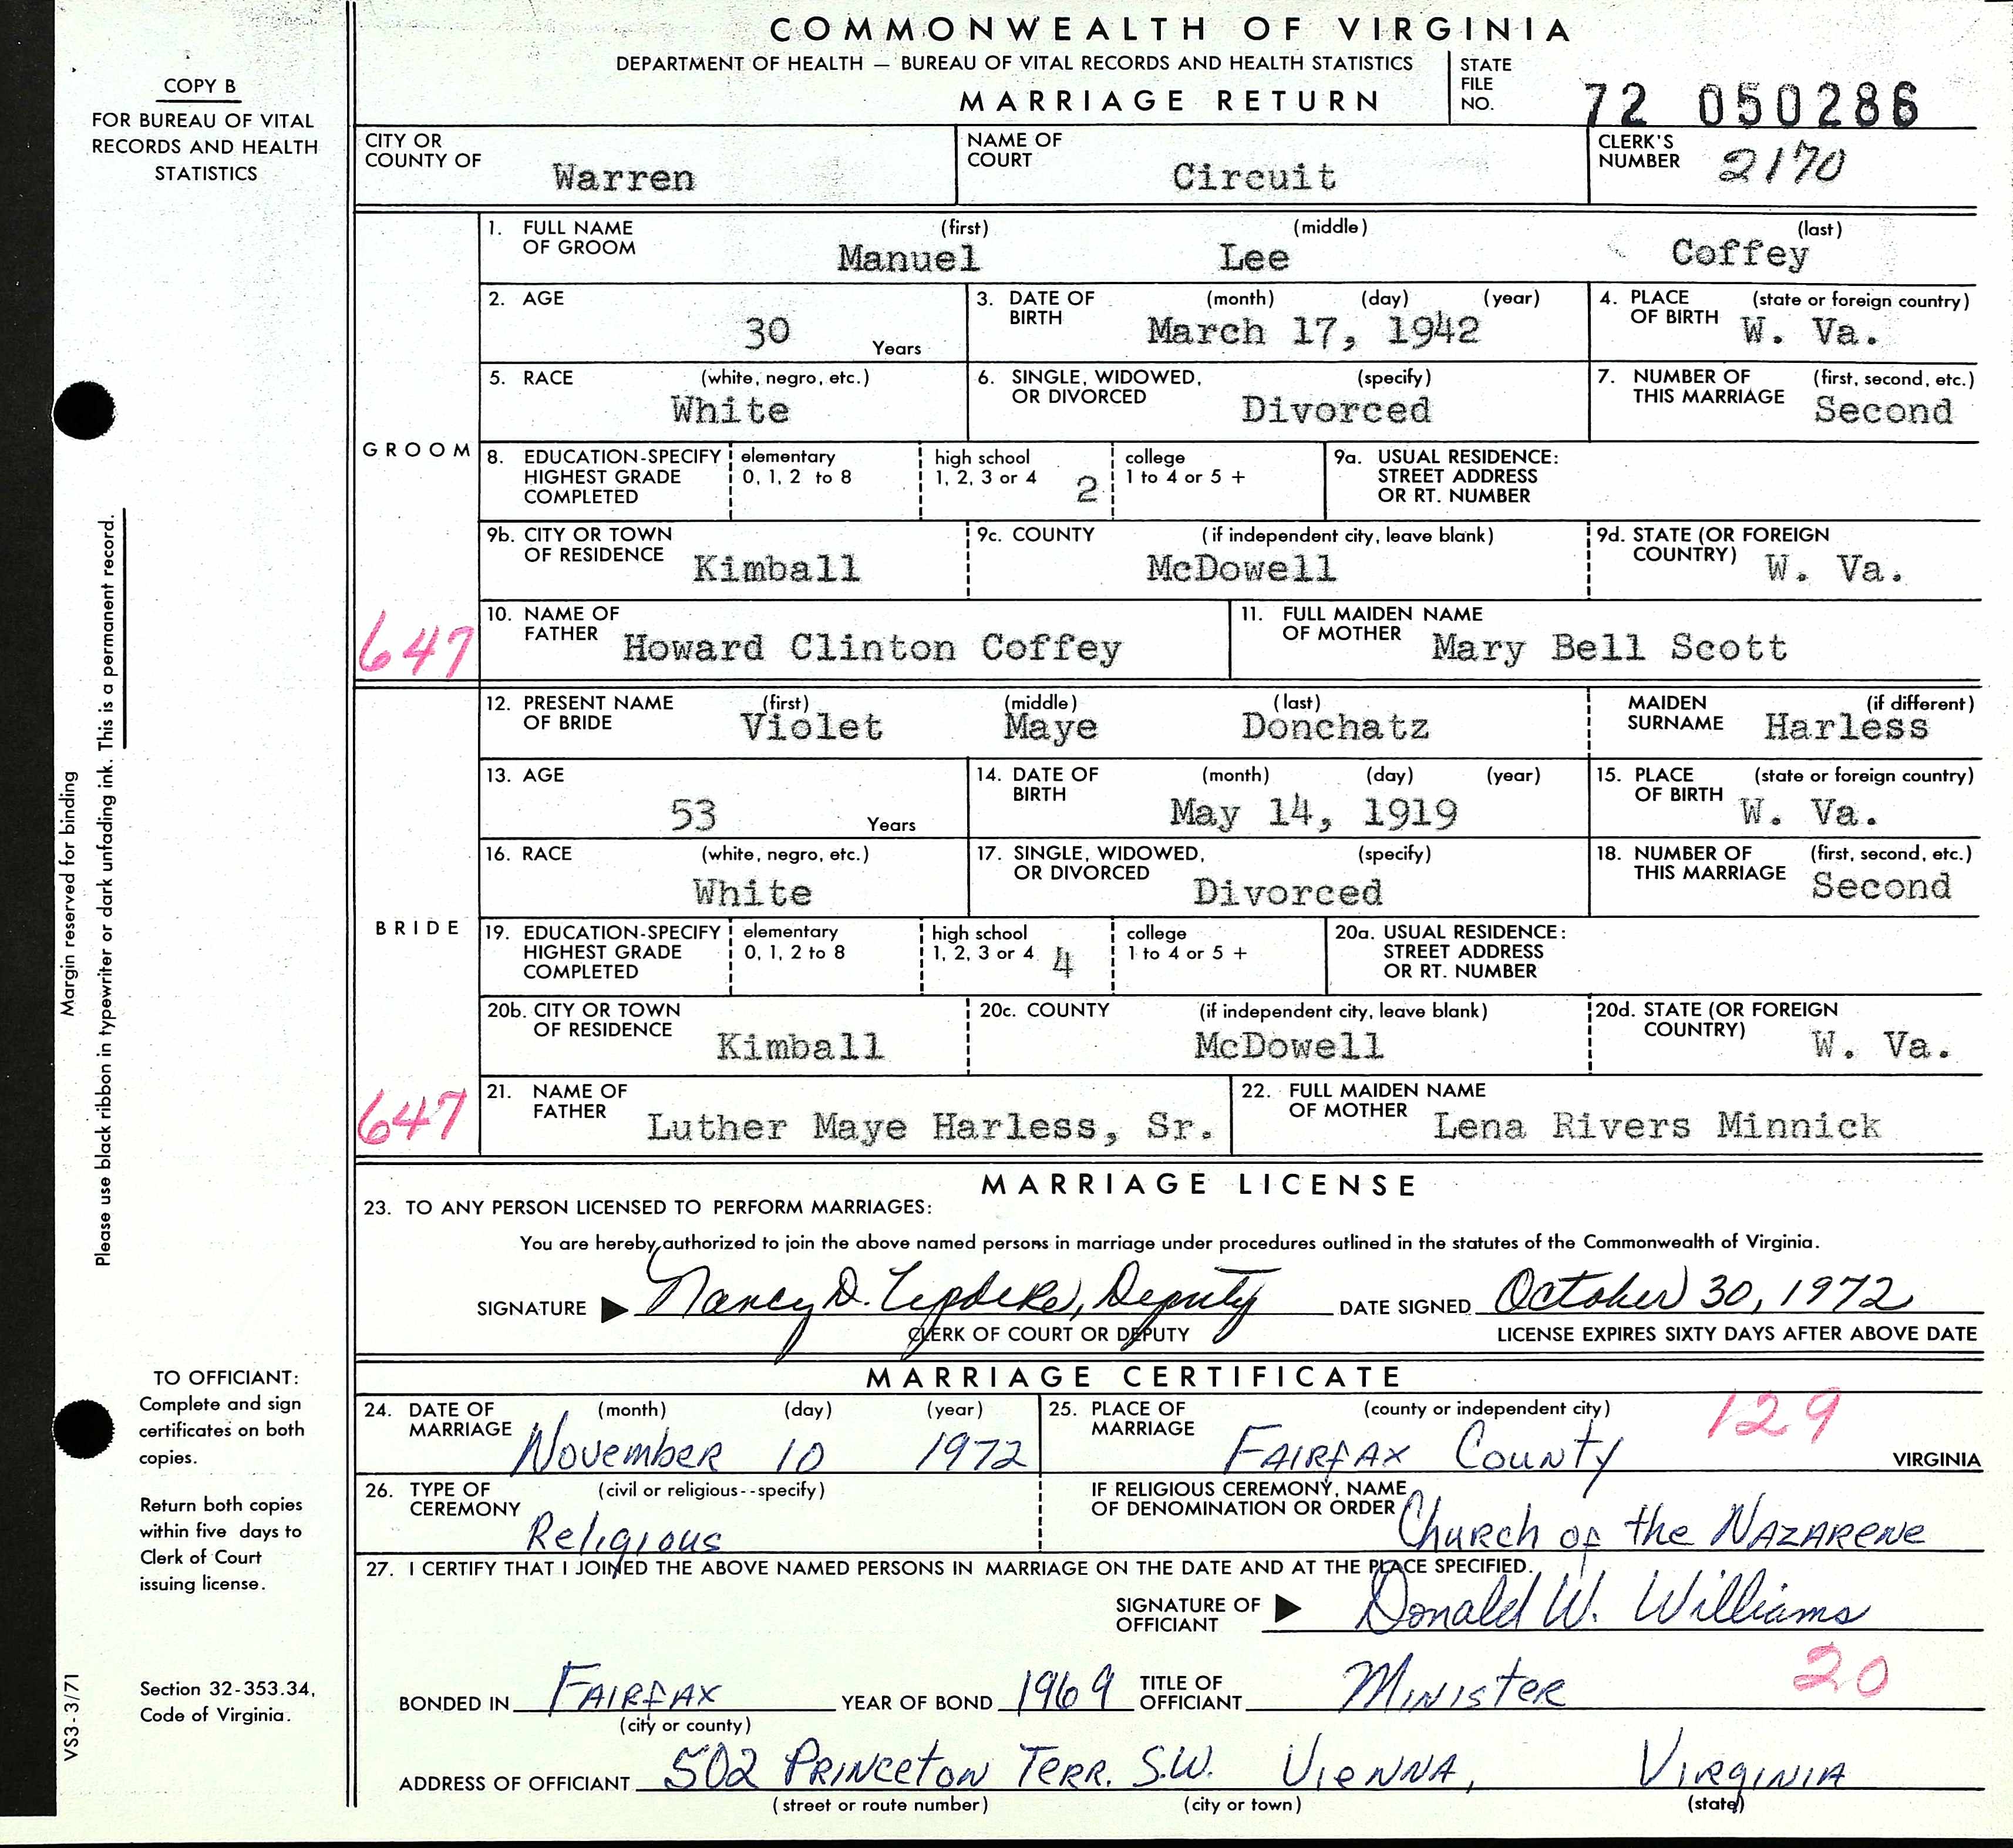 COMMONWEALTH OF VIRGINIA
DEPARTMENT OF HEALTH — BUREAU OF VITAL RECORDS AND HEALTH STATISTICS
MARRIAGE RETURN
STATE FILE NO. 72 050286
COPY B
FOR BUREAU OF VITAL
RECORDS AND HEALTH
STATISTICS
CITY OR COUNTY OF Warren NAME OF COURT Circuit CLERK'S NUMBER 2170
GROOM
1. FULL NAME OF GROOM (first) Manuel (middle) Lee (last) Coffey
2. AGE 30 Years 3. DATE OF BIRTH (month) (day) (year) March 17, 1942 4. PLACE OF BIRTH (state or foreign country) W. Va.
5. RACE (white, negro, etc.) White 6. SINGLE, WIDOWED, OR DIVORCED (specify) Divorced 7. NUMBER OF THIS MARRIAGE (first, second, etc.) Second
8. EDUCATION-SPECIFY HIGHEST GRADE COMPLETED elementary 0, 1, 2 to 8 high school 1, 2, 3 or 4 2 college 1 to 4 or 5 + 9a. USUAL RESIDENCE: STREET ADDRESS OR RT. NUMBER
9b. CITY OR TOWN OF RESIDENCE Kimball 9c. COUNTY (if independent city, leave blank) McDowell 9d. STATE (OR FOREIGN COUNTRY) W. Va.
647
10. NAME OF FATHER Howard Clinton Coffey 11. FULL MAIDEN NAME OF MOTHER Mary Bell Scott
BRIDE
12. PRESENT NAME OF BRIDE (first) Violet (middle) Maye (last) Donchatz MAIDEN SURNAME (if different) Harless
13. AGE 53 Years 14. DATE OF BIRTH (month) (day) (year) May 14, 1919 15. PLACE OF BIRTH (state or foreign country) W. Va.
16. RACE (white, negro, etc.) White 17. SINGLE, WIDOWED, OR DIVORCED (specify) Divorced 18. NUMBER OF THIS MARRIAGE (first, second, etc.) Second
19. EDUCATION-SPECIFY HIGHEST GRADE COMPLETED elementary 0, 1, 2 to 8 high school 1, 2, 3 or 4 4 college 1 to 4 or 5 + 20a. USUAL RESIDENCE: STREET ADDRESS OR RT. NUMBER
20b. CITY OR TOWN OF RESIDENCE Kimball 20c. COUNTY (if independent city, leave blank) McDowell 20d. STATE (OR FOREIGN COUNTRY) W. Va.
647
21. NAME OF FATHER Luther Maye Harless, Sr. 22. FULL MAIDEN NAME OF MOTHER Lena Rivers Minnick
MARRIAGE LICENSE
23. TO ANY PERSON LICENSED TO PERFORM MARRIAGES:
You are hereby authorized to join the above named persons in marriage under procedures outlined in the statutes of the Commonwealth of Virginia.
SIGNATURE Nancy D. Deputy DATE SIGNED October 30, 1972
CLERK OF COURT OR DEPUTY LICENSE EXPIRES SIXTY DAYS AFTER ABOVE DATE
MARRIAGE CERTIFICATE
24. DATE OF MARRIAGE (month) (day) (year) November 10 1972 25. PLACE OF MARRIAGE (county or independent city) Fairfax County 129 VIRGINIA
26. TYPE OF CEREMONY (civil or religious--specify) Religious IF RELIGIOUS CEREMONY, NAME OF DENOMINATION OR ORDER Church of the Nazarene
27. I CERTIFY THAT I JOINED THE ABOVE NAMED PERSONS IN MARRIAGE ON THE DATE AND AT THE PLACE SPECIFIED.
SIGNATURE OF OFFICIANT Donald W. Williams
BONDED IN Fairfax YEAR OF BOND 1969 TITLE OF OFFICIANT Minister 20
(city or county)
ADDRESS OF OFFICIANT 502 Princeton Terr. S.W. Vienna, Virginia
(street or route number) (city or town) (state)
Margin reserved for binding
Please use black ribbon in typewriter or dark unfading ink. This is a permanent record.
TO OFFICIANT:
Complete and sign
certificates on both
copies.
Return both copies
within five days to
Clerk of Court
issuing license.
Section 32-353.34,
Code of Virginia.
VS3-3/71